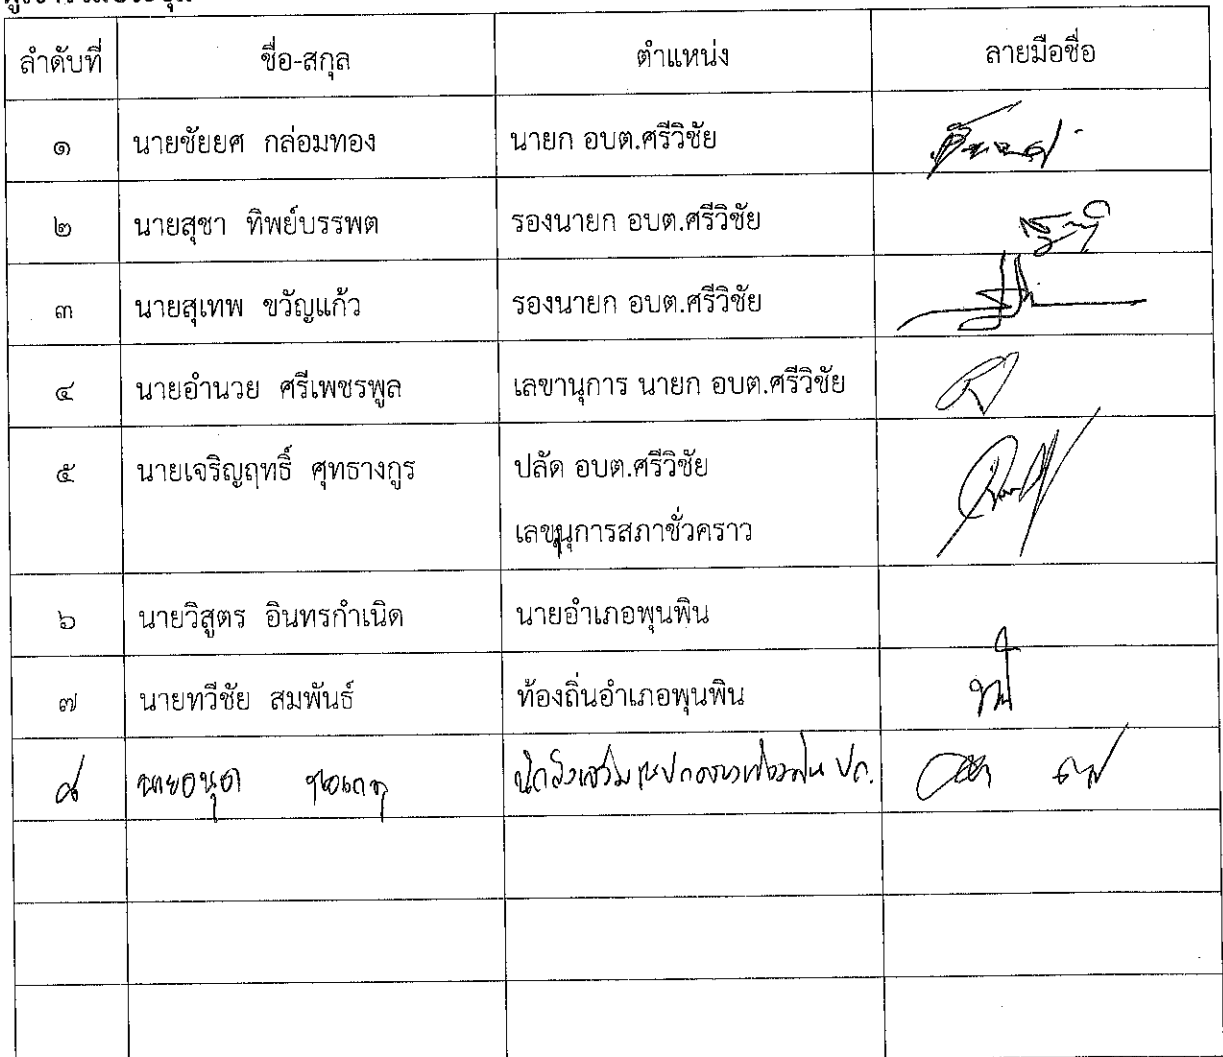 ลำดับที่ ชื่อ-สกุล ตำแหน่ง ลายมือชื่อ
๑ นายชัยยศ กล่อมทอง นายก อบต.ศรีวิชัย
๒ นายสุชา ทิพย์บรรพต รองนายก อบต.ศรีวิชัย
๓ นายสุเทพ ขวัญแก้ว รองนายก อบต.ศรีวิชัย
๔ นายอำนวย ศรีเพชรพูล เลขานุการ นายก อบต.ศรีวิชัย
๕ นายเจริญฤทธิ์ ศุทธางกูร ปลัด อบต.ศรีวิชัย
เลขานุการสภาชั่วคราว
๖ นายวิสูตร อินทรกำเนิด นายอำเภอพุนพิน
๗ นายทวีชัย สมพันธ์ ท้องถิ่นอำเภอพุนพิน
๘ ปก.